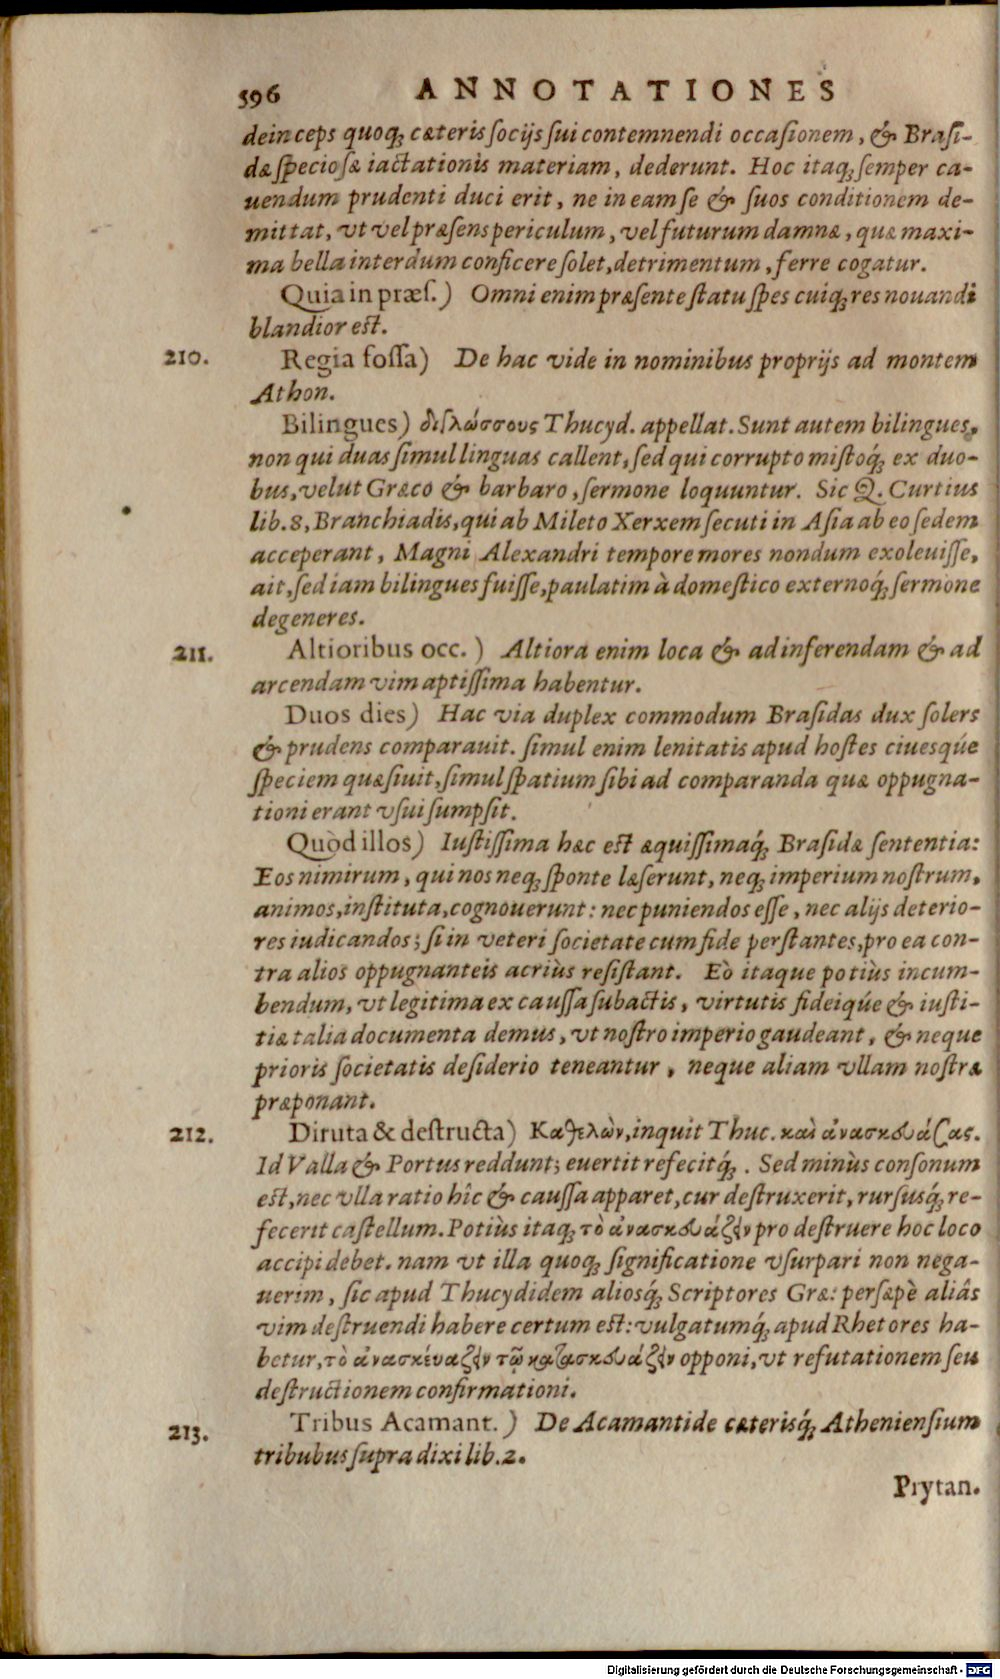 596 ANNOTATIONES
deinceps quoq; cæteris socijs sui contemnendi occasionem, & Brasi-
dæ speciosæ iactationis materiam, dederunt. Hoc itaq; semper ca-
uendum prudenti duci erit, ne in eam se & suos conditionem de-
mittat, vt vel præsens periculum, vel futurum damnæ, quæ maxi-
ma bella interdum conficere solet, detrimentum, ferre cogatur.
Quia in præs.) Omni enim præsente statu spes cuiq; res nouandi
blandior est.
210. Regia fossa) De hac vide in nominibus proprijs ad montem
Athon.
Bilingues) διγλώσσους Thucyd. appellat. Sunt autem bilingues,
non qui duas simul linguas callent, sed qui corrupto mistoq́; ex duo-
bus, velut Græco & barbaro, sermone loquuntur. Sic Q. Curtius
lib. 8, Branchiadis, qui ab Mileto Xerxem secuti in Asia ab eo sedem
acceperant, Magni Alexandri tempore mores nondum exoleuisse,
ait, sed iam bilingues fuisse, paulatim à domestico externoq́; sermone
degeneres.
211. Altioribus occ.) Altiora enim loca & ad inferendam & ad
arcendam vim aptissima habentur.
Duos dies) Hac via duplex commodum Brasidas dux solers
& prudens comparauit. simul enim lenitatis apud hostes ciuesq́ue
speciem quæsiuit, simul spatium sibi ad comparanda quæ oppugna-
tioni erant vsui sumpsit.
Quòd illos) Iustissima hæc est æquissimaq́; Brasidæ sententia:
Eos nimirum, qui nos neq; sponte læserunt, neq; imperium nostrum,
animos, instituta, cognouerunt: nec puniendos esse, nec alijs deterio-
res iudicandos; si in veteri societate cum fide perstantes, pro ea con-
tra alios oppugnanteis acriùs resistant. Eò itaque potiùs incum-
bendum, vt legitima ex caussa subactis, virtutis fideiq́ue & iusti-
tiæ talia documenta demus, vt nostro imperio gaudeant, & neque
prioris societatis desiderio teneantur, neque aliam vllam nostræ
præponant.
212. Diruta & destructa) Καθελὼν, inquit Thuc. καὶ ἀνασκευάσας.
Id Valla & Portus reddunt; euertit refecitq́;. Sed minùs consonum
est, nec vlla ratio hîc & caussa apparet, cur destruxerit, rursusq́; re-
fecerit castellum. Potiùs itaq; τὸ ἀνασκευάζειν pro destruere hoc loco
accipi debet. nam vt illa quoq; significatione vsurpari non nega-
uerim, sic apud Thucydidem aliosq́; Scriptores Græ: persæpè aliâs
vim destruendi habere certum est: vulgatumq́; apud Rhetores ha-
betur, τὸ ἀνασκέυαζειν τῷ κατασκευάζειν opponi, vt refutationem seu
destructionem confirmationi.
213. Tribus Acamant.) De Acamantide cæterisq́; Atheniensium
tribubus supra dixi lib. 2.
Prytan.
Digitalisierung gefördert durch die Deutsche Forschungsgemeinschaft - DFG